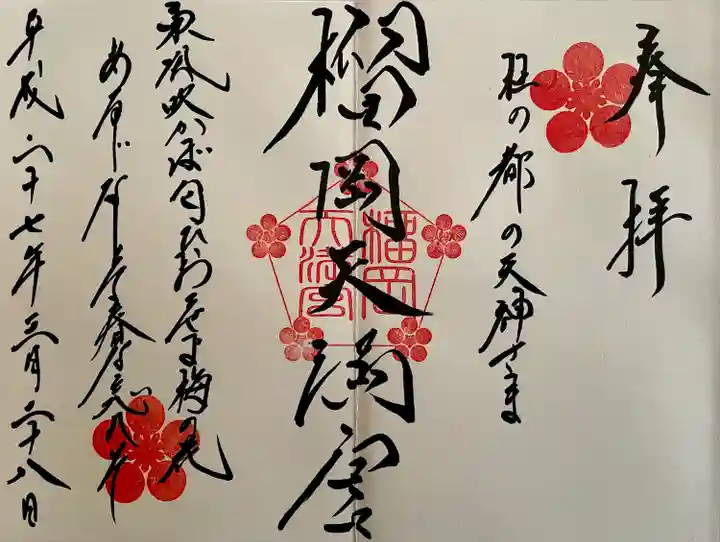 奉拝
杜の都の天神さま
榴岡天満宮
榴岡
天満宮
東風吹かば匂ひおこせよ梅の花
あるじなしとて春な忘れそ
平成二十七年三月二十八日